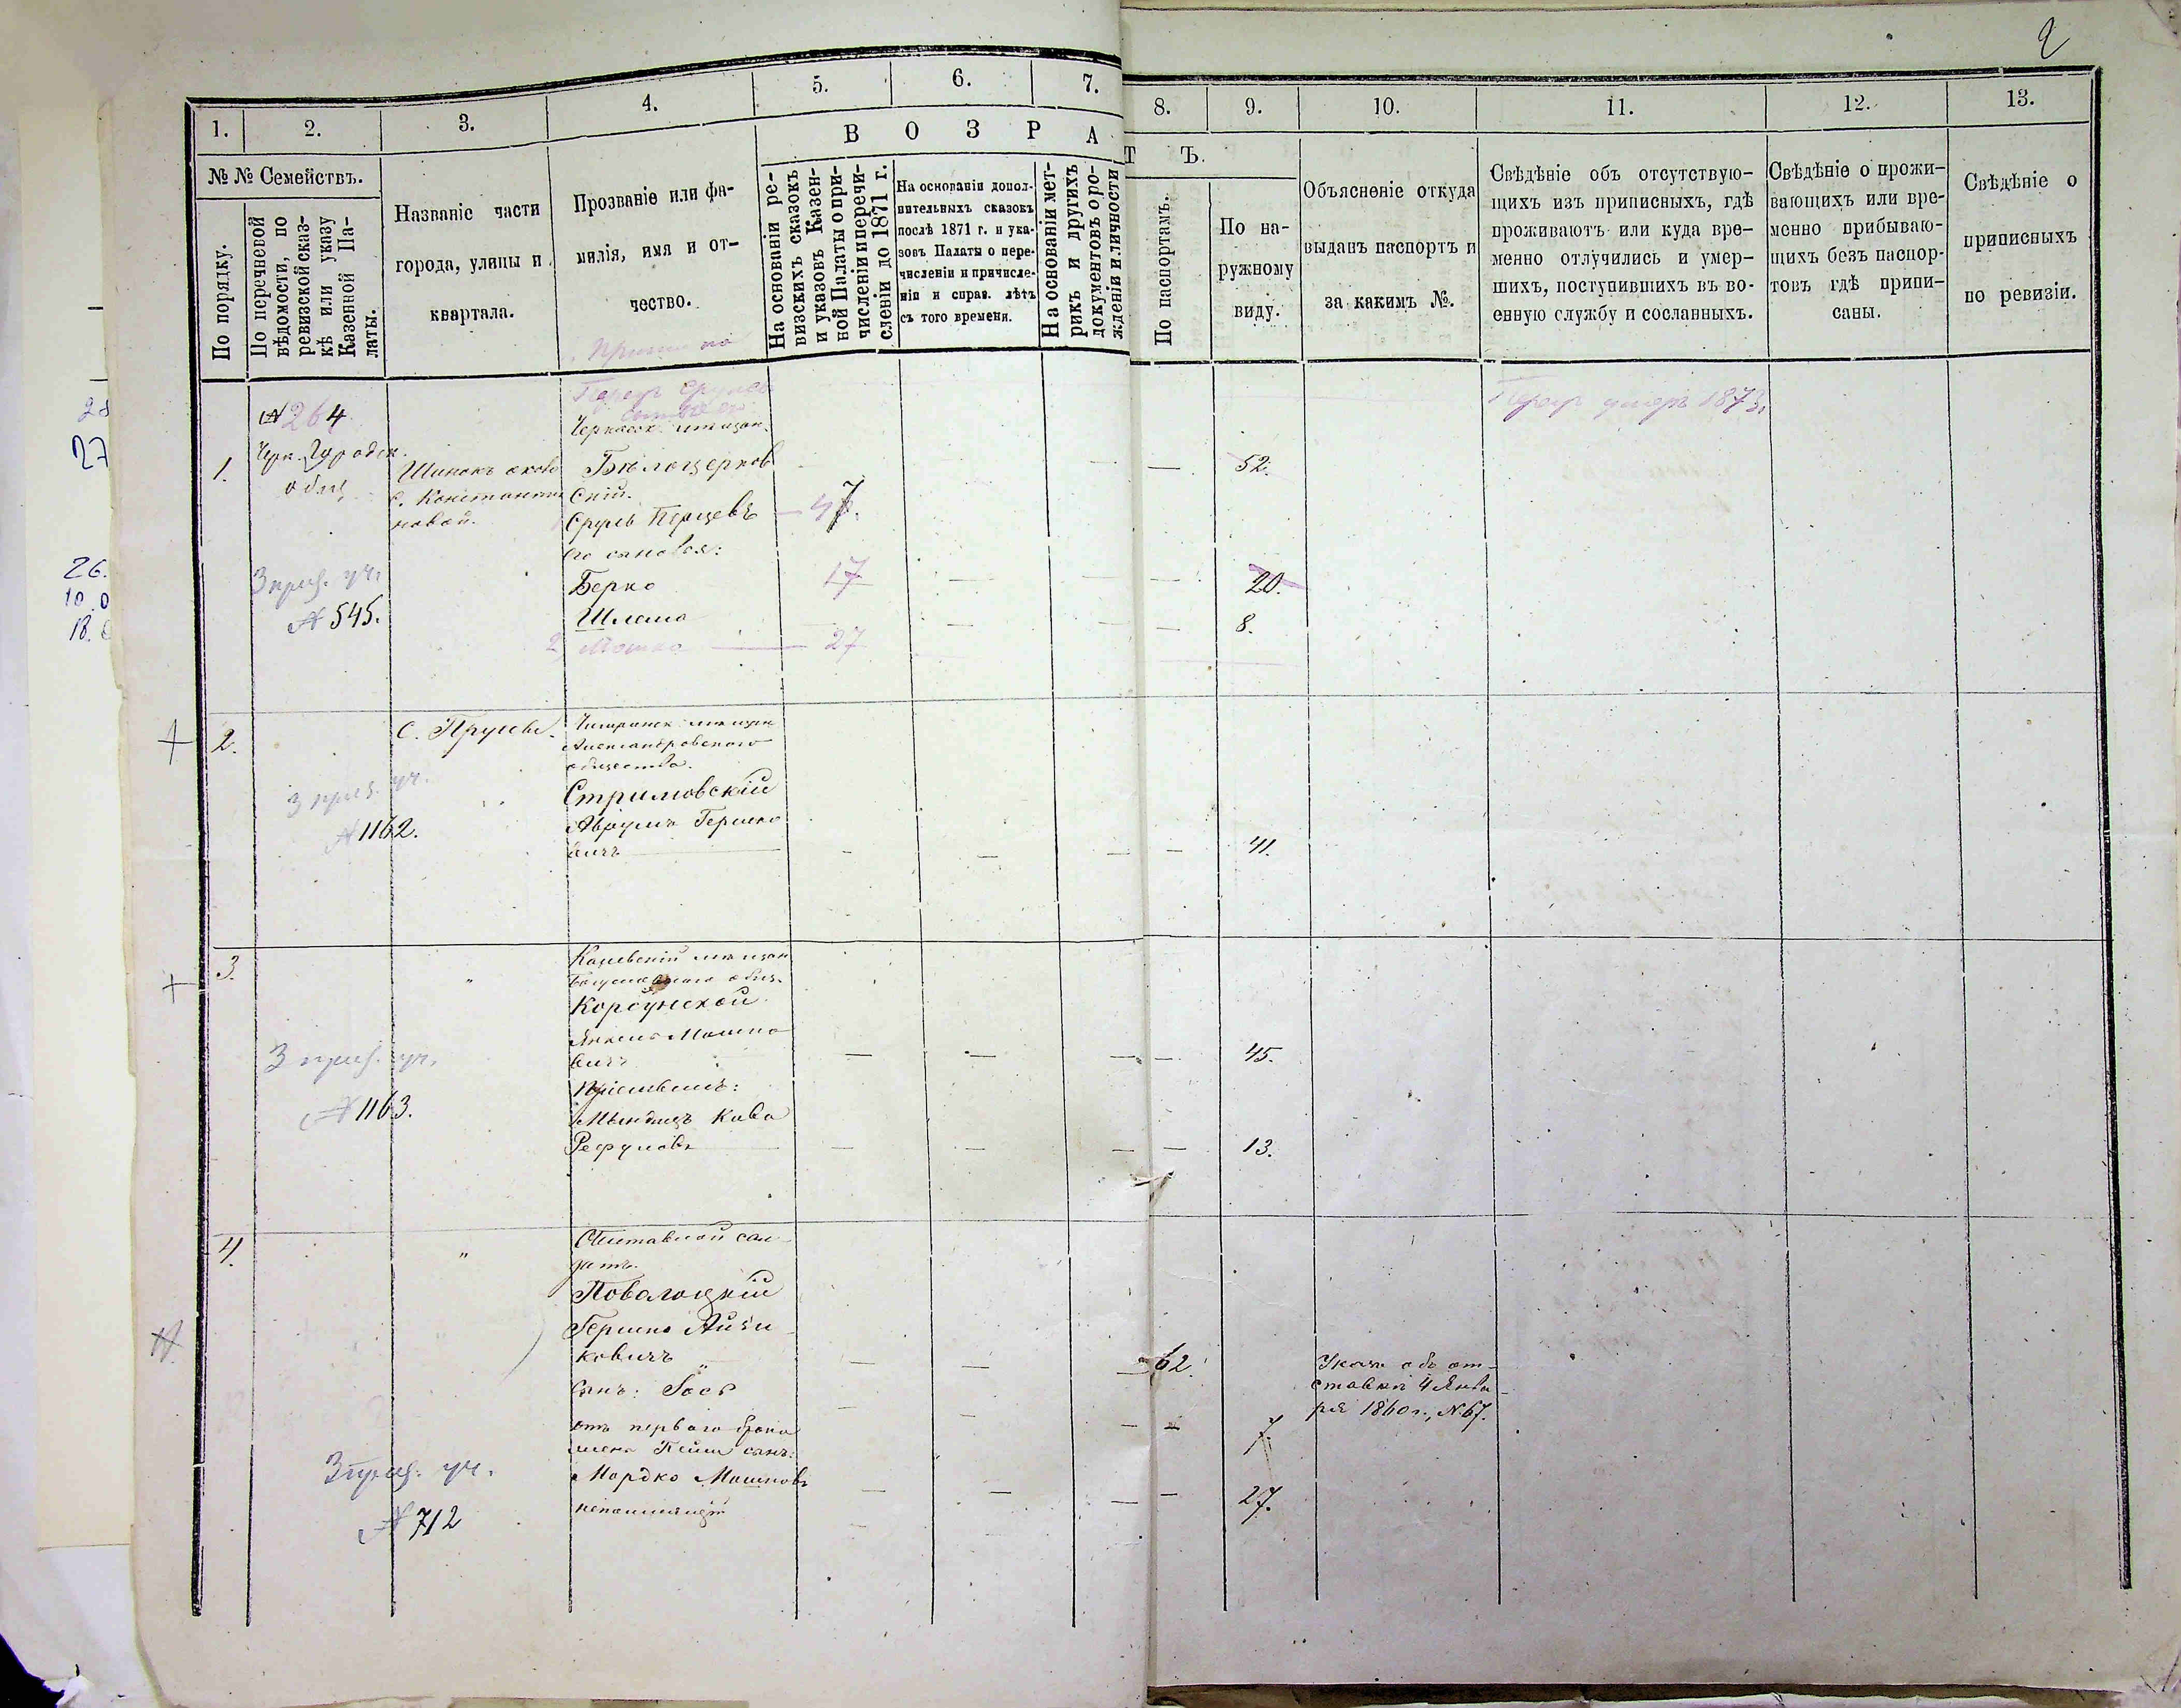 2
1.
2.
3.
4.
5.
6.
7.
8.
9.
10.
11.
12.
13.
В О З Р А Т Ъ.
№ № Семействъ.
По порядку.
По перечневой
вѣдомости, по
ревизской сказ-
кѣ или указу
Казенной Па-
латы.
Названіе части
города, улицы и
квартала.
Прозваніе или фа-
милія, имя и от-
чество.
На основаніи ре-
визскихъ сказокъ
и указовъ Казен-
ной Палаты о при-
численіи и перечи-
сленіи до 1871 г.
На основаніи допол-
нительныхъ сказокъ
послѣ 1871 г. и ука-
зовъ Палаты о пере-
численіи и причисле-
ніи и справ. лѣтъ
съ того времени.
На основаніи мет-
рикъ и другихъ
документовъ о ро-
жденіи и личности
По паспортамъ.
По на-
ружному
виду.
Объясненіе откуда
выданъ паспортъ и
за какимъ №.
Свѣдѣніе объ отсутствую-
щихъ изъ приписныхъ, гдѣ
проживаютъ или куда вре-
менно отлучились и умер-
шихъ, поступившихъ въ во-
енную службу и сосланныхъ.
Свѣдѣніе о прожи-
вающихъ или вре-
менно прибываю-
щихъ безъ паспор-
товъ гдѣ припи-
саны.
Свѣдѣніе о
приписныхъ
по ревизіи.
№ 264
Черк. Городск.
общ.
1.
Шинокъ около
с. Константи
новой.
Черкасск. мѣщан.
Бѣлоцерков
скій.
Сруль Перцевъ
47.
52.
умеръ 1873.
его сыновья:
Берко
17
20.
Шлема
8.
2) Мошко
27
3 приз. уч.
№ 545.
2.
С. Прусы.
Чигиринск. мѣщан
Александровскаго
общества.
Стримовскій
Аврумъ Гершко
вичъ
41.
3 приз. уч.
№ 1162.
3.
"
Каневскій мѣщан
Богуславскаго общ.
Корсунской
Янкель Мошко
вичъ
45.
Пріемышъ:
Кива
Рефуловъ
13.
3 приз. уч.
№ 1163.
4.
"
Отставной сол-
датъ.
Поволоцкій
Гершко Айзи
ковичъ
62.
Указъ объ от-
ставкѣ 4 Янва-
ря 1860 г., № 67.
сынъ: Іось
7.
отъ перваго брака
жены сынъ:
Мордко Мошковъ
27.
3 приз. уч.
№ 712
27
26.
10.0